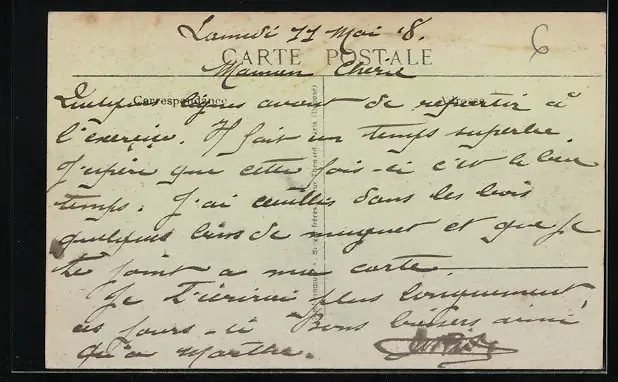 Samedi 11 Mai 18.
CARTE POSTALE
Maman Chérie
Correspondance Adresse
Quelques lignes avant de repartir à
l'exercice. Il fait un temps superbe.
J'espère que cette fois-ci c'est le beau
temps. J'ai cueilli dans les bois
quelques brins de muguet et que je
te joint a ma carte.
Je t'écrirai plus longuement
ces jours-ci Bons baisers ainsi
qu'a Marthe.
6